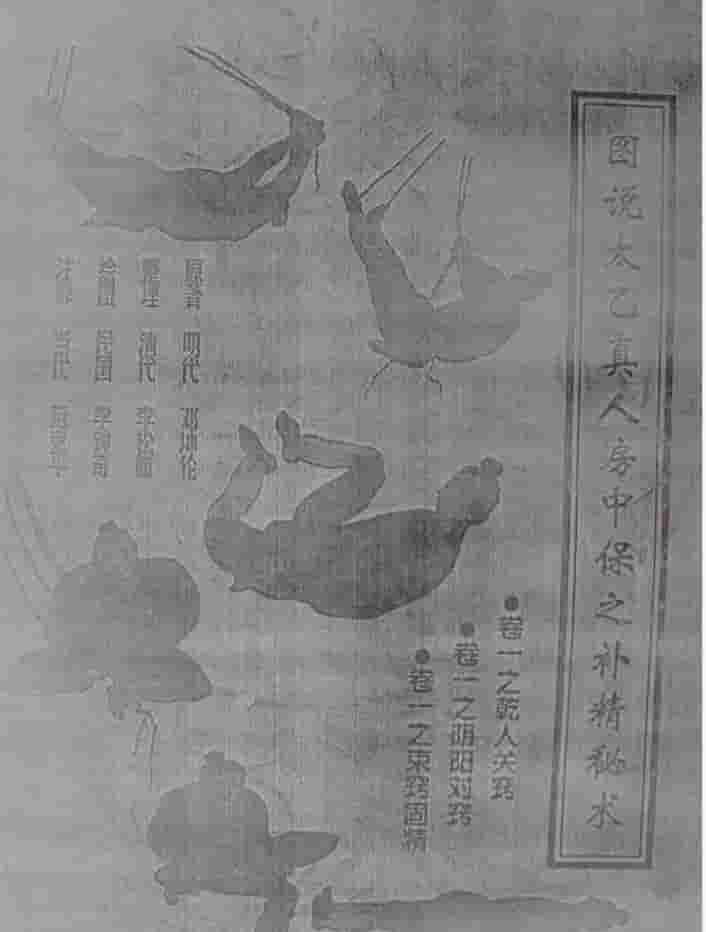 图说太乙真人房中保之补精秘术
●卷一之乾人关窍
●卷一之阴阳对窍
●卷一之束窍固精
原著 明代
整理 清代
绘图 民国
当代